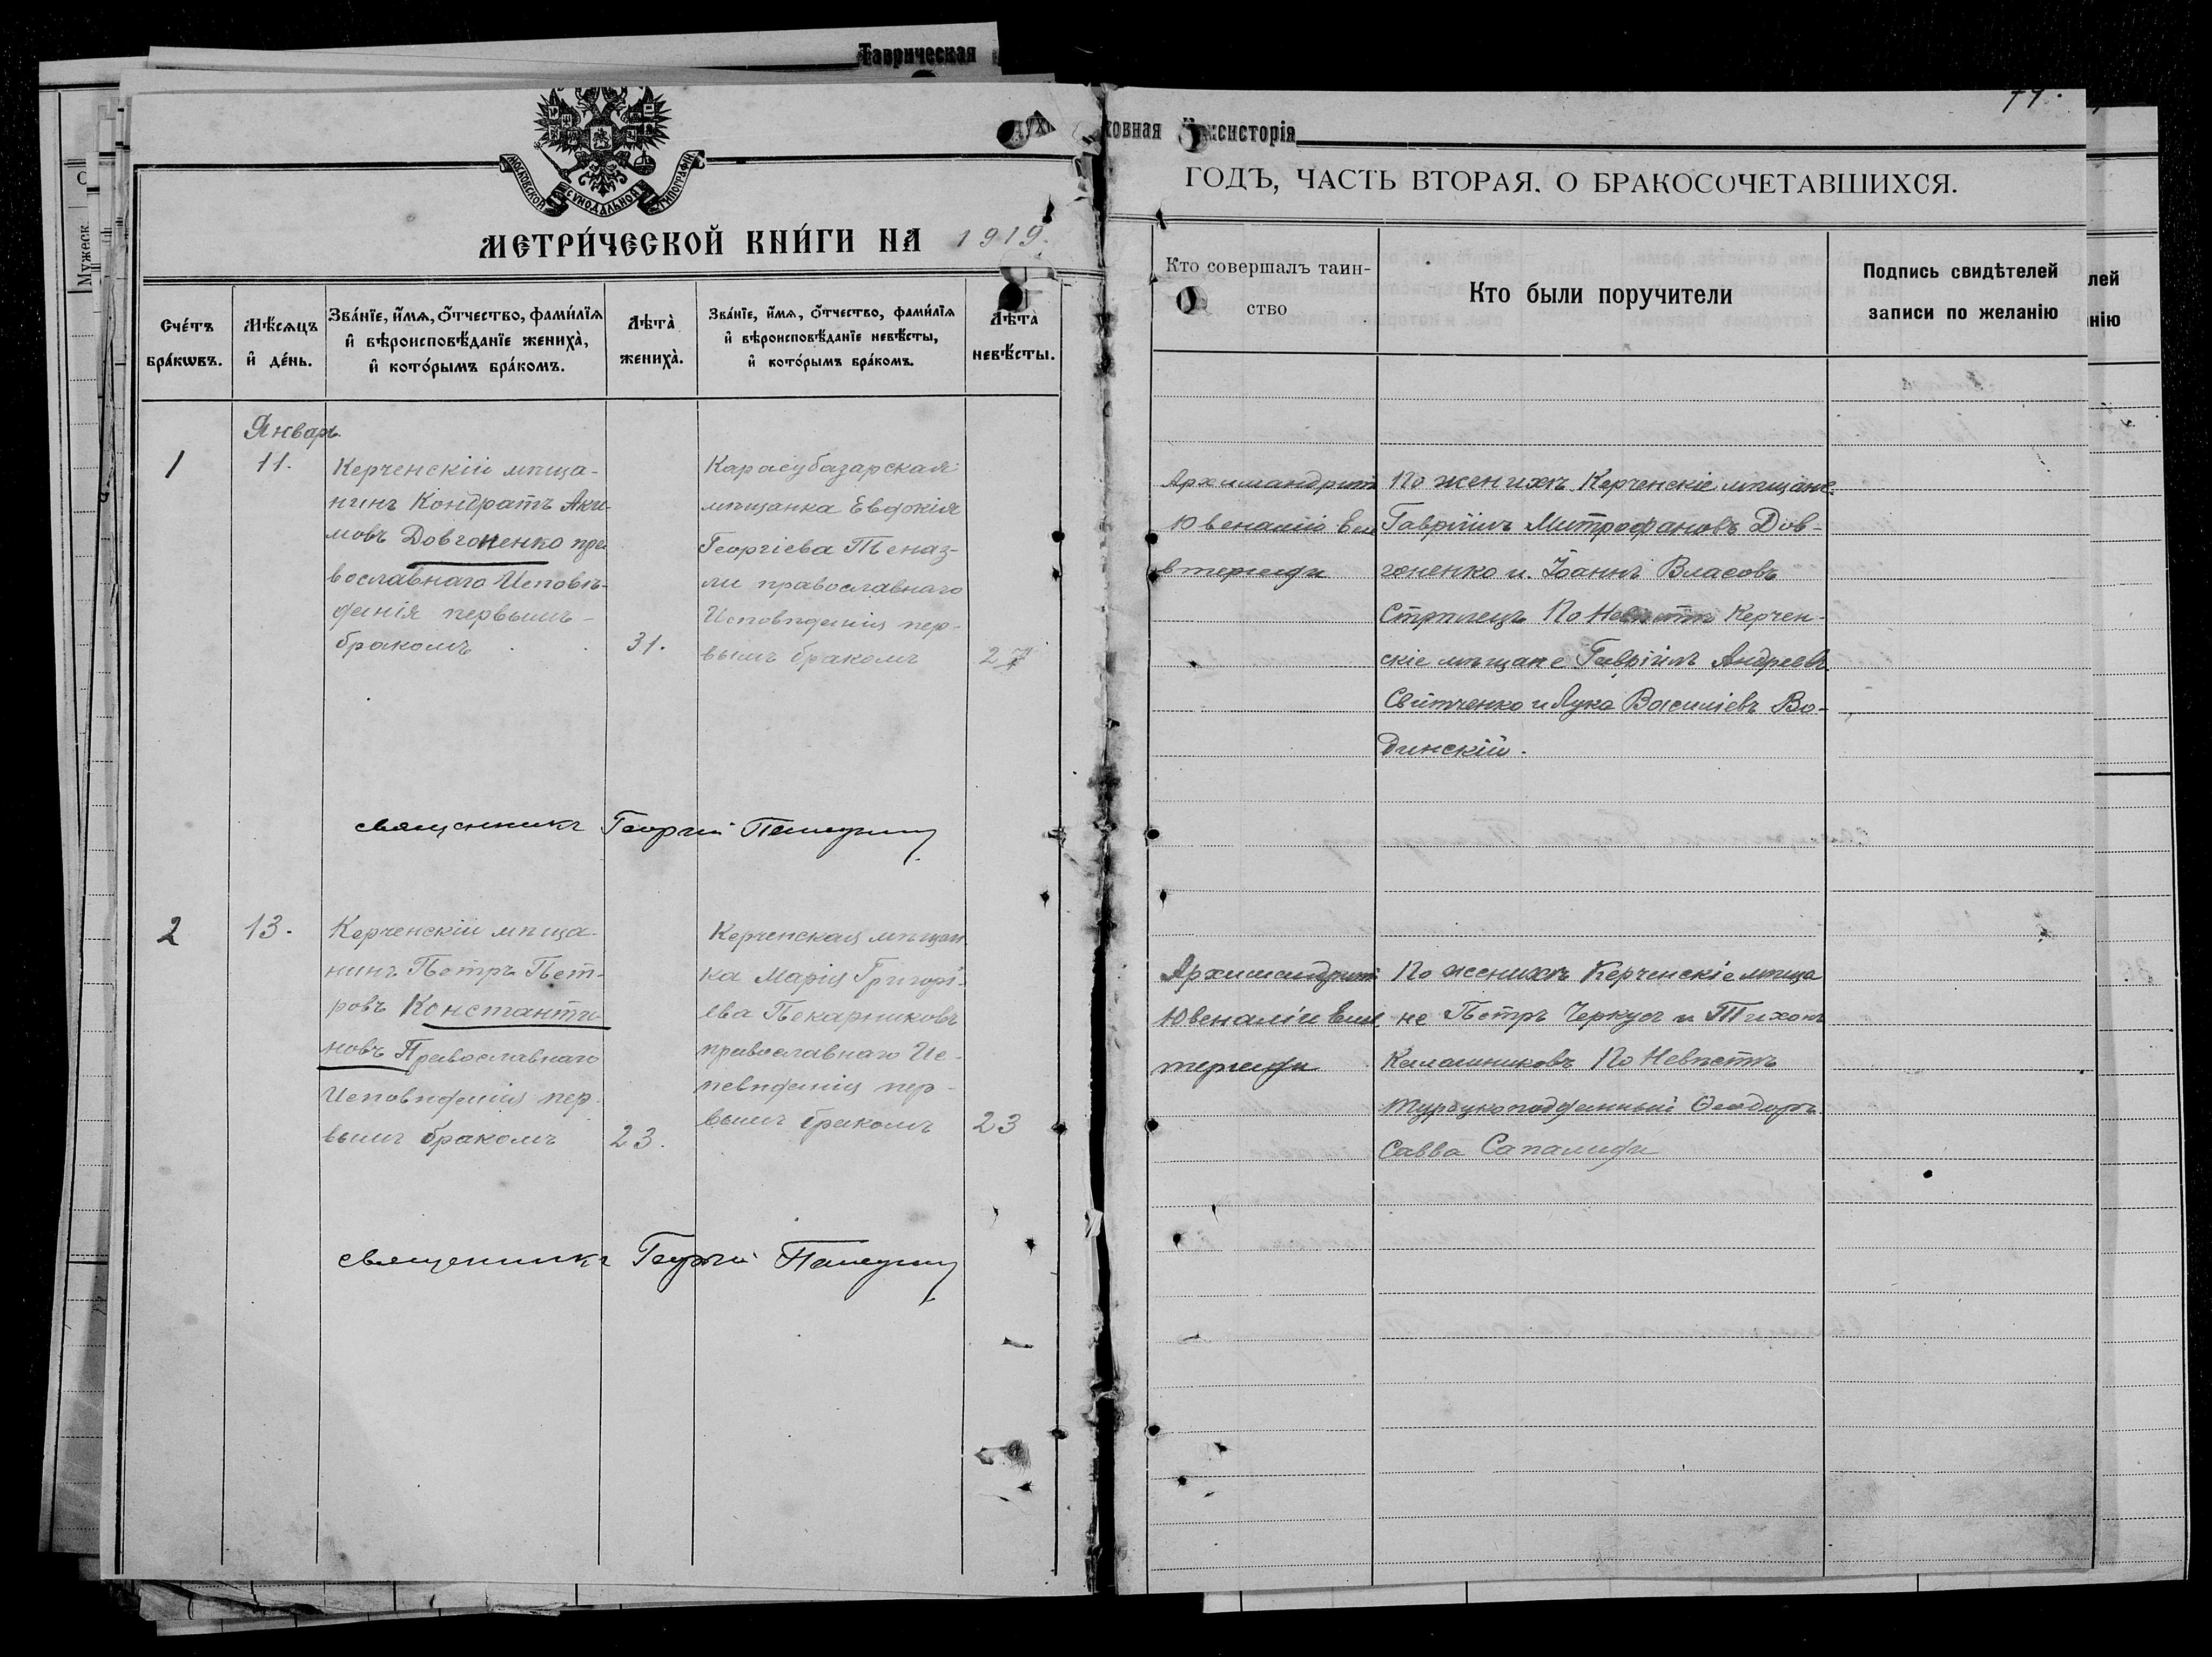 Таврическая
Духовная Консисторія
МОСКОВСКОЙ СѴНОДАЛЬНОЙ ТИПОГРАФІИ
МЕТРИ́ЧЕСКОЙ КНИ́ГИ НА 1919. ГОДЪ, ЧАСТЬ ВТОРАЯ, О БРАКОСОЧЕТАВШИХСЯ.
Сче́тъ бра́кѡвъ.
Мѣ́сѧцъ и҆ де́нь.
Зва́нїе, и҆́мѧ, ѻ҆́тчество, фами́лїѧ
и҆ вѣроисповѣ́данїе жениха̀,
и҆ кото́рымъ бра́комъ.
Лѣта̀ жениха̀.
Зва́нїе, и҆́мѧ, ѻ҆́тчество, фами́лїѧ
и҆ вѣроисповѣ́данїе невѣ́сты,
и҆ кото́рымъ бра́комъ.
Лѣта̀ невѣ́сты.
Кто совершалъ таинство
Кто были поручители
Подпись свидѣтелей
записи по желанію
Январь
1
11.
Керченскій мѣща-
нинъ Кондратъ Аки-
мовъ Довгоненко пра
вославнаго Исповѣ-
данія первымъ
бракомъ
31.
Карасубазарская
мѣщанка Евдокія
Георгіева
ли православнаго
Исповѣданія пер-
вымъ бракомъ
Архимандритъ
Ювеналій
По женихѣ Керченскіе мѣщане
Гавріилъ Митрофановъ Дов-
гоненко и Іоаннъ Власовъ
Стрѣлецъ По Невѣстѣ Керчен-
скіе мѣщане Гавріилъ Андреевъ
Свитченко и Лука Василіевъ Во-
динскій.
священникъ Георгій
2
13.
Керченскій мѣща-
нинъ Петръ Пет-
ровъ Константи
новъ Православнаго
Исповѣданія пер-
вымъ бракомъ
23.
Керченская мѣщан
ка Марія Григорі-
ева Пекарникова
православнаго Ис-
повѣданія пер-
вымъ бракомъ
23
Архимандритъ
Ювеналій
По женихѣ Керченскіе мѣща
не Петръ Черкусъ и Тихонъ
Калашниковъ По Невѣстѣ
Турецкоподданный Ѳеодоръ
Савва
священникъ Георгій